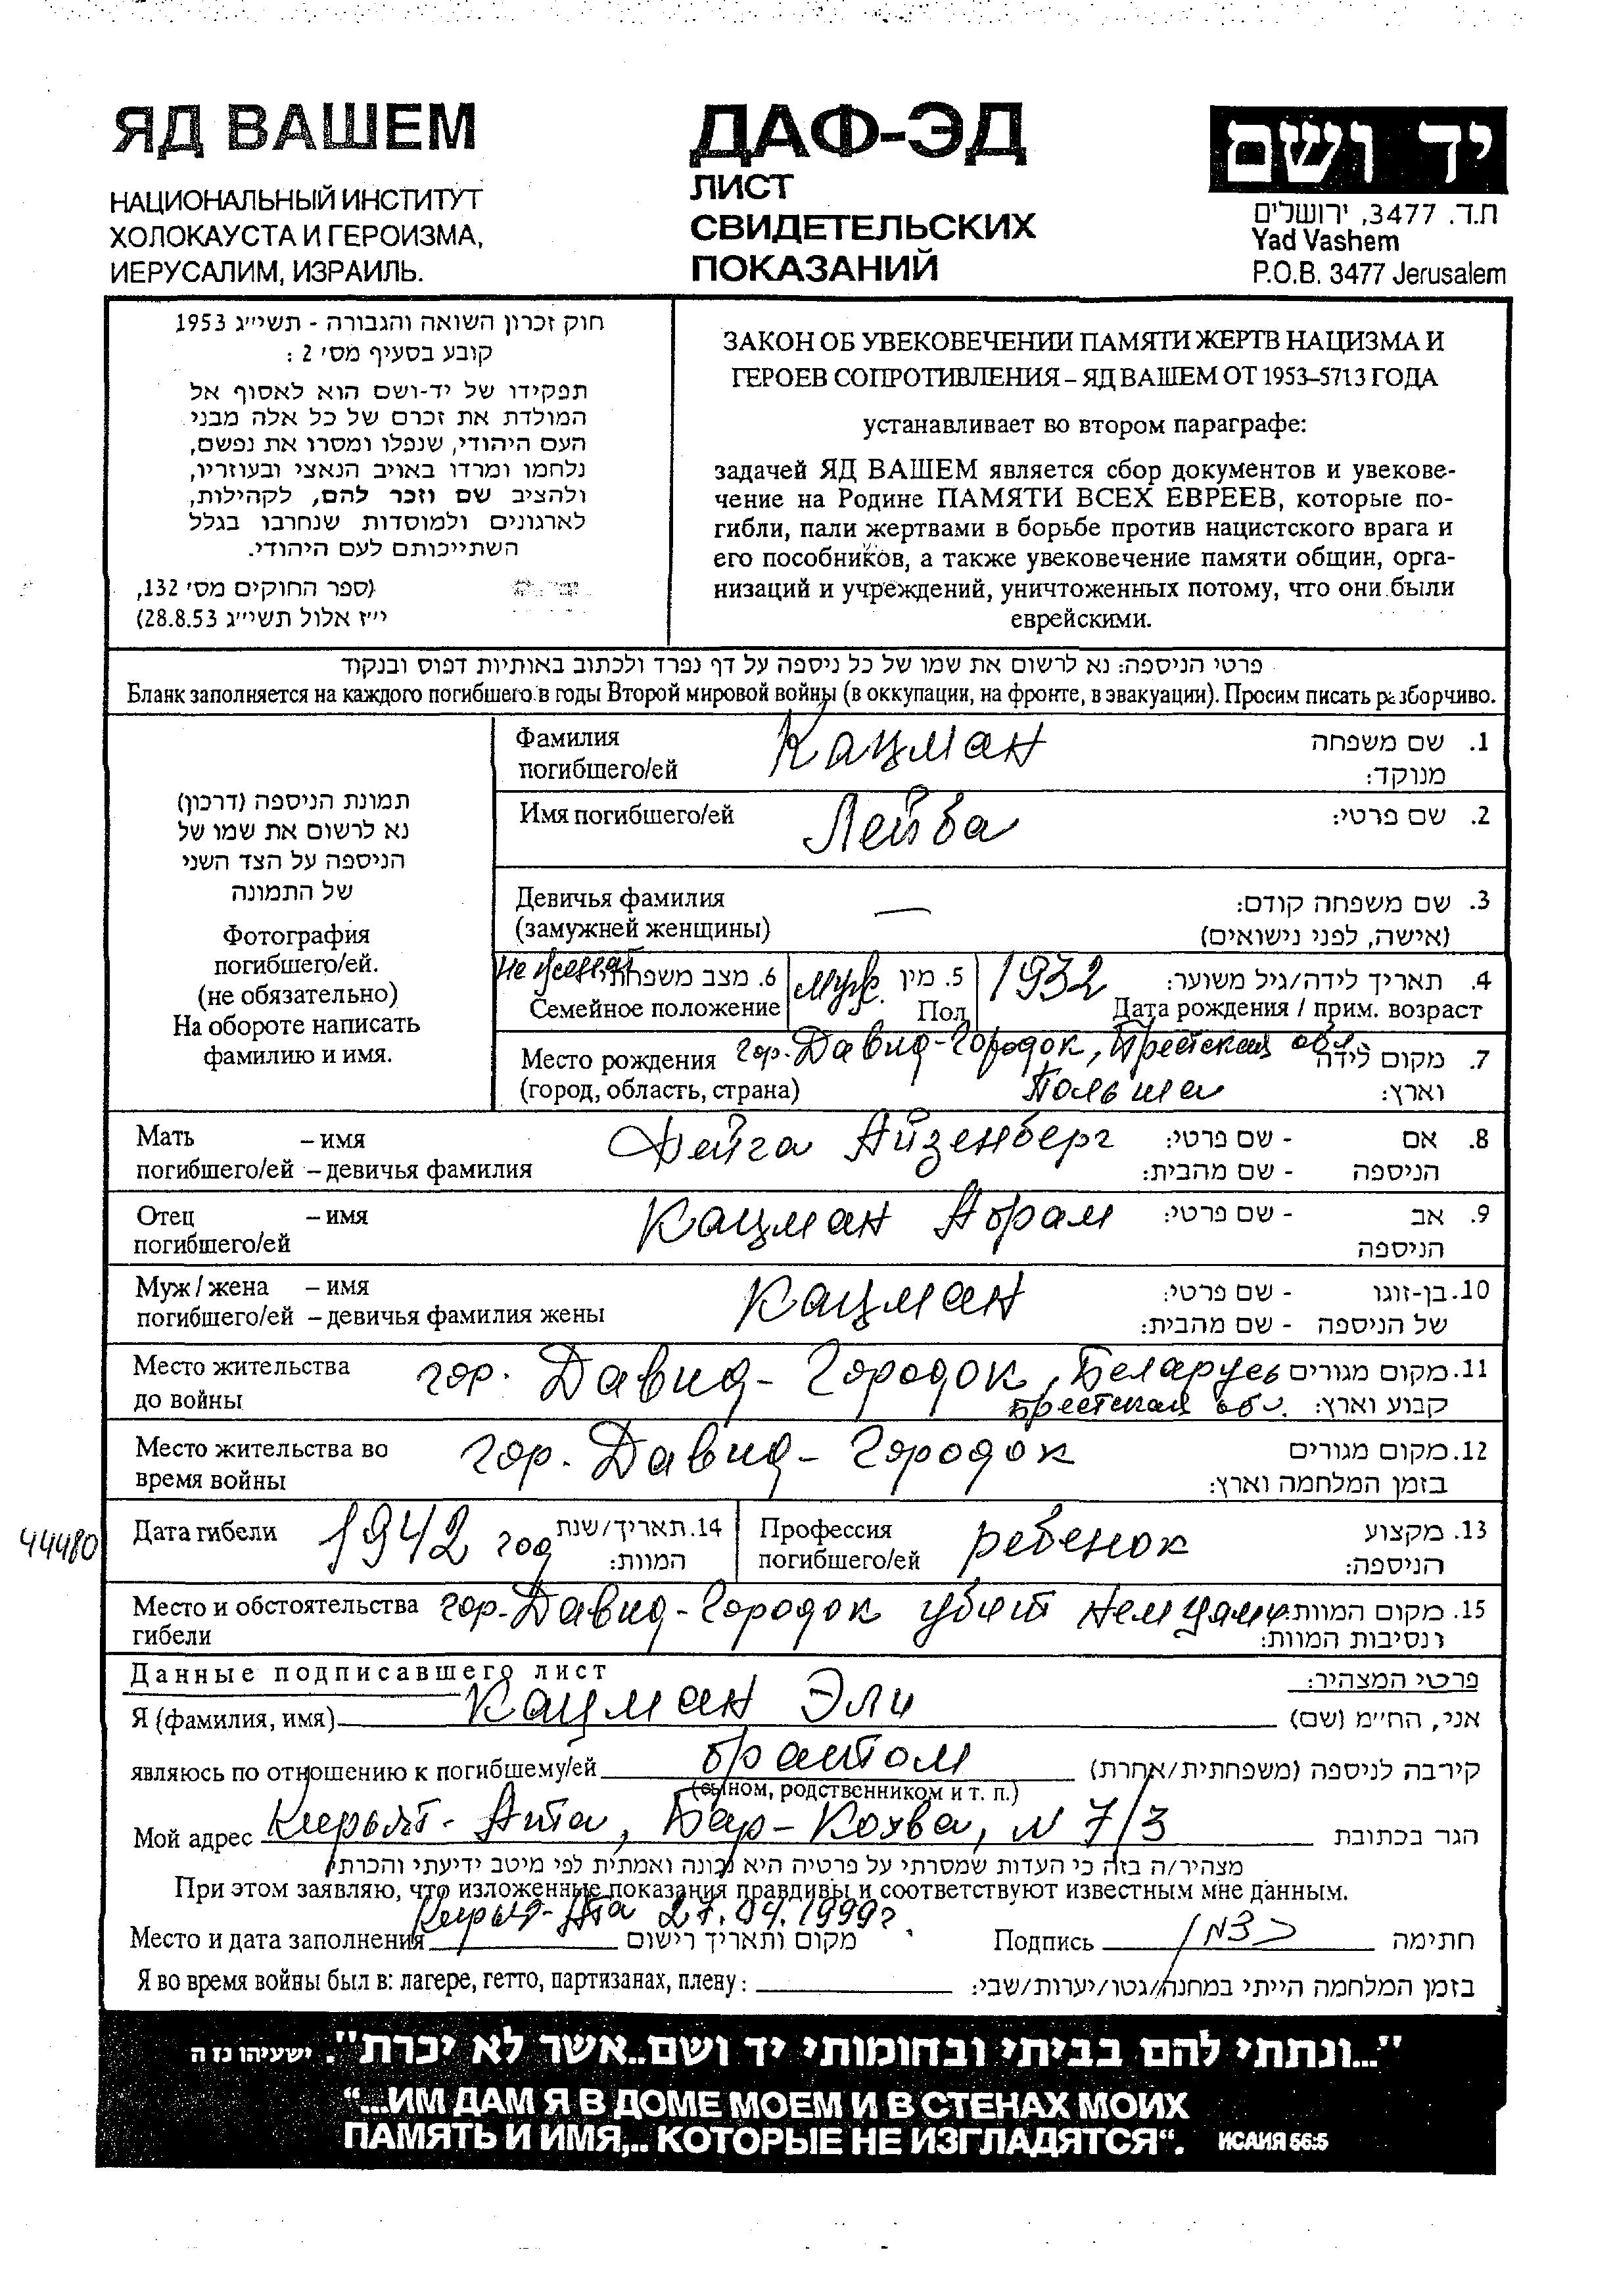 ЯД ВАШЕМ
НАЦИОНАЛЬНЫЙ ИНСТИТУТ
ХОЛОКАУСТА И ГЕРОИЗМА,
ИЕРУСАЛИМ, ИЗРАИЛЬ.
ДАФ-ЭД
ЛИСТ
СВИДЕТЕЛЬСКИХ
ПОКАЗАНИЙ
יד ושם
ת.ד. 3477, ירושלים
Yad Vashem
P.O.B. 3477 Jerusalem
חוק זכרון השואה והגבורה - תשי״ג 1953
קובע בסעיף מס׳ 2 :
תפקידו של יד-ושם הוא לאסוף אל
המולדת את זכרם של כל אלה מבני
העם היהודי, שנפלו ומסרו את נפשם,
נלחמו ומרדו באויב הנאצי ובעוזריו,
ולהציב שם וזכר להם, לקהילות,
לארגונים ולמוסדות שנחרבו בגלל
השתייכותם לעם היהודי.
(ספר החוקים מס׳ 132,
י״ז אלול תשי״ג 28.8.53)
ЗАКОН ОБ УВЕКОВЕЧЕНИИ ПАМЯТИ ЖЕРТВ НАЦИЗМА И
ГЕРОЕВ СОПРОТИВЛЕНИЯ – ЯД ВАШЕМ ОТ 1953–5713 ГОДА
устанавливает во втором параграфе:
задачей ЯД ВАШЕМ является сбор документов и увекове-
чение на Родине ПАМЯТИ ВСЕХ ЕВРЕЕВ, которые по-
гибли, пали жертвами в борьбе против нацистского врага и
его пособников, а также увековечение памяти общин, орга-
низаций и учреждений, уничтоженных потому, что они были
еврейскими.
פרטי הניספה: נא לרשום את שמו של כל ניספה על דף נפרד ולכתוב באותיות דפוס ובנקוד
Бланк заполняется на каждого погибшего в годы Второй мировой войны (в оккупации, на фронте, в эвакуации). Просим писать разборчиво.
תמונת הניספה (דרכון)
נא לרשום את שמו של
הניספה על הצד השני
של התמונה
Фотография
погибшего/ей.
(не обязательно)
На обороте написать
фамилию и имя.
Фамилия Кацман 1. שם משפחה
погибшего/ей מנוקד:
Имя погибшего/ей Лейба 2. שם פרטי:
Девичья фамилия — 3. שם משפחה קודם:
(замужней женщины) (אישה, לפני נישואים)
Не женат 6. מצב משפחתי муж. 5. מין 1932 4. תאריך לידה/גיל משוער:
Семейное положение Пол Дата рождения / прим. возраст
Место рождения гор. Давид-Городок, Брестская обл. 7. מקום לידה
(город, область, страна) Польша וארץ:
Мать – имя Фейга Айзенберг 8. אם - שם פרטי:
погибшего/ей – девичья фамилия הניספה - שם מהבית:
Отец – имя Кацман Абрам 9. אב - שם פרטי:
погибшего/ей הניספה
Муж / жена – имя Кацман 10. בן-זוגו - שם פרטי:
погибшего/ей – девичья фамилия жены של הניספה - שם מהבית:
Место жительства гор. Давид-Городок, Беларусь 11. מקום מגורים
до войны Брестская обл. קבוע וארץ:
Место жительства во гор. Давид-Городок 12. מקום מגורים
время войны בזמן המלחמה וארץ:
44480
Дата гибели 1942 год 14. תאריך/שנת המוות:
Профессия ребенок 13. מקצוע
погибшего/ей הניספה:
Место и обстоятельства гор. Давид-Городок убит немцами 15. מקום המוות
гибели ונסיבות המוות:
Данные подписавшего лист פרטי המצהיר:
Я (фамилия, имя) Кацман Эли אני, הח״מ (שם)
являюсь по отношению к погибшему/ей братом קירבה לניספה (משפחתית/אחרת)
(сыном, родственником и т. п.)
Мой адрес Кирьят-Ата, Бар-Кохва, N 7/3 הגר בכתובת
מצהיר/ה בזה כי העדות שמסרתי על פרטיה היא נכונה ואמתית לפי מיטב ידיעתי והכרתי
При этом заявляю, что изложенные показания правдивы и соответствуют известным мне данным.
Место и дата заполнения Кирьят-Ата 27.04.1999г מקום ותאריך רישום Подпись חתימה
Я во время войны был в: лагере, гетто, партизанах, плену: בזמן המלחמה הייתי במחנה/גטו/יערות/שבי:
"...ונתתי להם בביתי ובחומותי יד ושם..אשר לא יכרת". ישעיהו נז ה
“...ИМ ДАМ Я В ДОМЕ МОЕМ И В СТЕНАХ МОИХ
ПАМЯТЬ И ИМЯ,.. КОТОРЫЕ НЕ ИЗГЛАДЯТСЯ“. ИСАИЯ 56:5